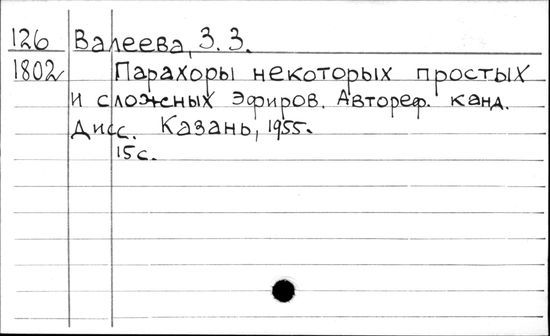 126 Валеева, З. З.
1802 Парахоры некоторых простых
и сложных эфиров. Автореф. канд.
дисс. Казань, 1955.
15 с.